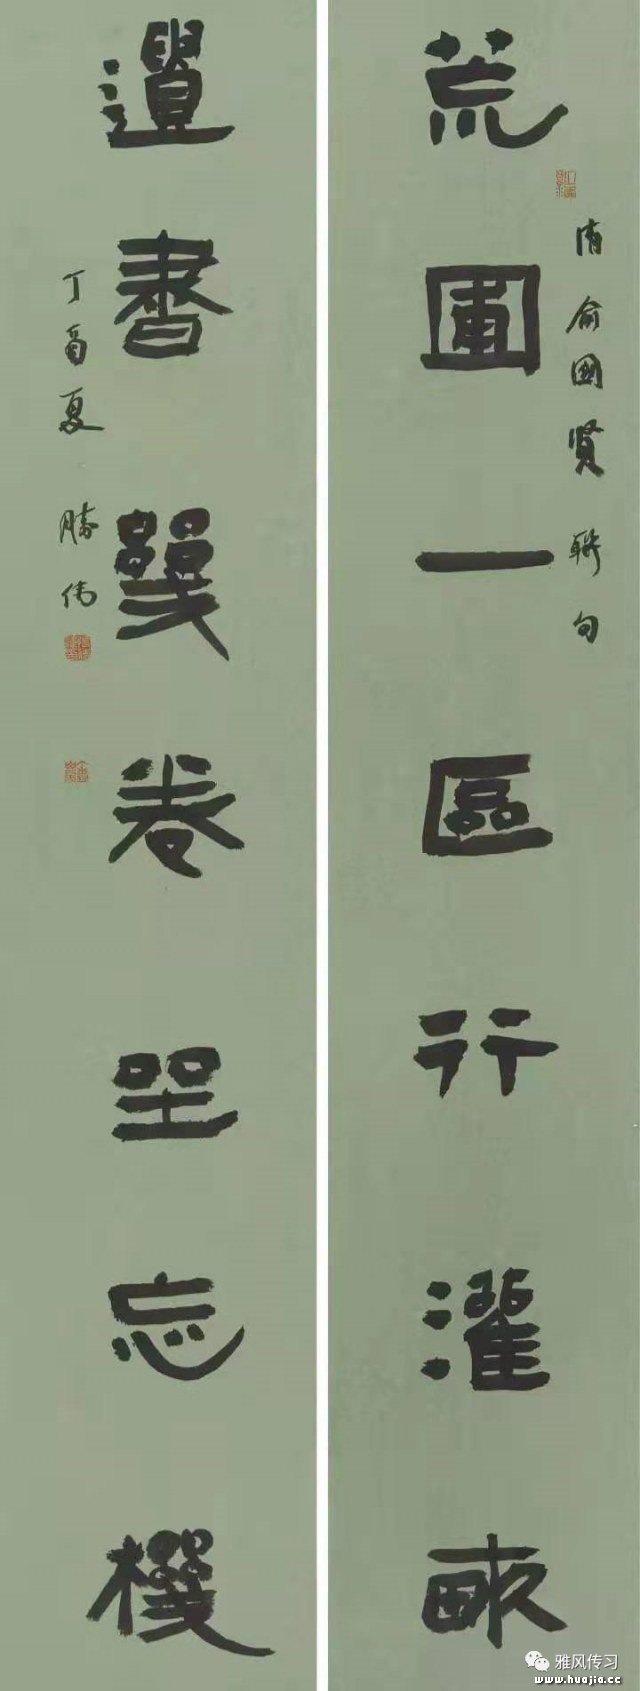 荒圃一區行灌畝
清俞國賢聯句
遺書幾卷坐忘機
丁酉夏 勝伟
雅风传习
www.huajia.cc